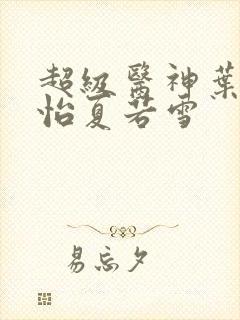 超級醫神葉
怡夏若雪
易忘夕